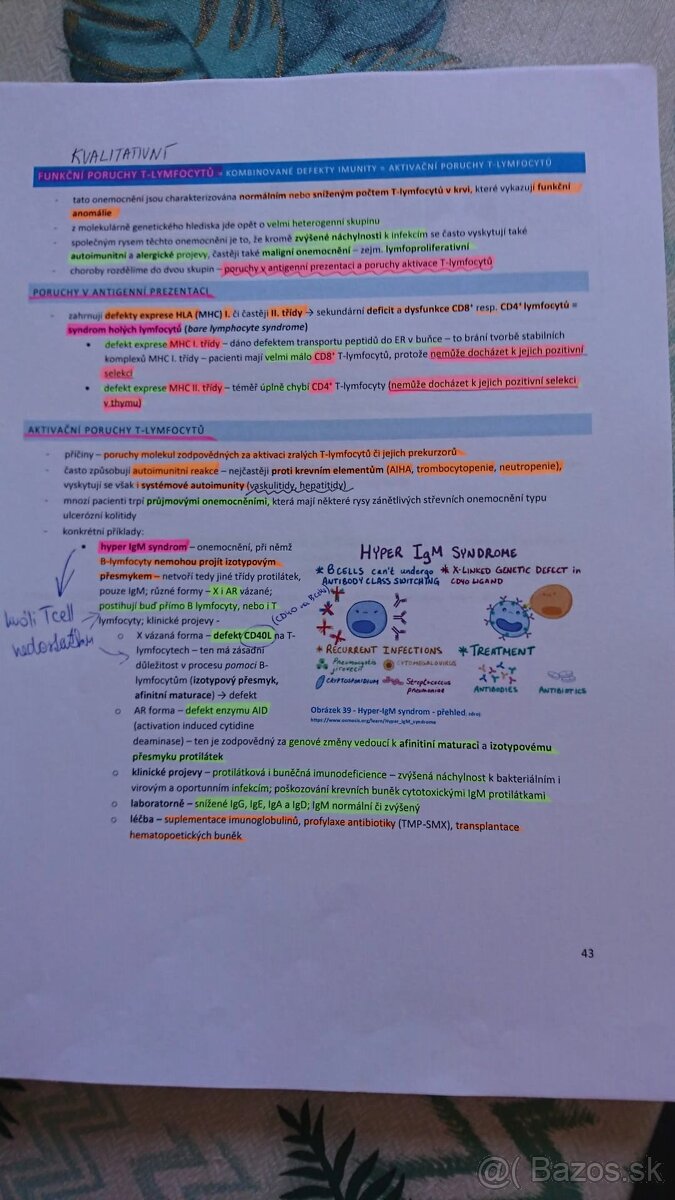 KVALITATIVNÍ
FUNKČNÍ PORUCHY T-LYMFOCYTŮ = KOMBINOVANÉ DEFEKTY IMUNITY = AKTIVAČNÍ PORUCHY T-LYMFOCYTŮ
- tato onemocnění jsou charakterizována normálním nebo sníženým počtem T-lymfocytů v krvi, které vykazují funkční
anomálie
- z molekulárně genetického hlediska jde opět o velmi heterogenní skupinu
- společným rysem těchto onemocnění je to, že kromě zvýšené náchylnosti k infekcím se často vyskytují také
autoimunitní a alergické projevy, častěji také maligní onemocnění – zejm. lymfoproliferativní
- choroby rozdělíme do dvou skupin – poruchy v antigenní prezentaci a poruchy aktivace T-lymfocytů
PORUCHY V ANTIGENNÍ PREZENTACI
- zahrnují defekty exprese HLA (MHC) I. či častěji II. třídy → sekundární deficit a dysfunkce CD8⁺ resp. CD4⁺ lymfocytů =
syndrom holých lymfocytů (bare lymphocyte syndrome)
• defekt exprese MHC I. třídy – dáno defektem transportu peptidů do ER v buňce – to brání tvorbě stabilních
komplexů MHC I. třídy – pacienti mají velmi málo CD8⁺ T-lymfocytů, protože nemůže docházet k jejich pozitivní
selekci
• defekt exprese MHC II. třídy – téměř úplně chybí CD4⁺ T-lymfocyty (nemůže docházet k jejich pozitivní selekci
v thymu)
AKTIVAČNÍ PORUCHY T-LYMFOCYTŮ
- příčiny – poruchy molekul zodpovědných za aktivaci zralých T-lymfocytů či jejich prekurzorů
- často způsobují autoimunitní reakce – nejčastěji proti krevním elementům (AIHA, trombocytopenie, neutropenie),
vyskytují se však i systémové autoimunity (vaskulitidy, hepatitidy)
- mnozí pacienti trpí průjmovými onemocněními, která mají některé rysy zánětlivých střevních onemocnění typu
ulcerózní kolitidy
- konkrétní příklady:
▪ hyper IgM syndrom – onemocnění, při němž
B-lymfocyty nemohou projít izotypovým
přesmykem – netvoří tedy jiné třídy protilátek,
pouze IgM; různé formy – X i AR vázané;
postihují buď přímo B lymfocyty, nebo i T
lymfocyty; klinické projevy -
kvôli T cell
nedostatku
(CD40 na B
o X vázaná forma – defekt CD40L na T-
lymfocytech – ten má zásadní
důležitost v procesu pomoci B-
lymfocytům (izotypový přesmyk,
afinitní maturace) → defekt
o AR forma – defekt enzymu AID
(activation induced cytidine
deaminase) – ten je zodpovědný za genové změny vedoucí k afinitní maturaci a izotypovému
přesmyku protilátek
HYPER IgM SYNDROME
* B CELLS can't undergo ANTIBODY CLASS SWITCHING
* X-LINKED GENETIC DEFECT in CD40 LIGAND
* RECURRENT INFECTIONS
Pneumocystis jirovecii
CYTOMEGALOVIRUS
CRYPTOSPORIDIUM
Streptococcus pneumoniae
* TREATMENT
ANTIBODIES
ANTIBIOTICS
Obrázek 39 - Hyper-IgM syndrom - přehled, zdroj:
https://www.osmosis.org/learn/Hyper_IgM_syndrome
o klinické projevy – protilátková i buněčná imunodeficience – zvýšená náchylnost k bakteriálním i
virovým a oportunním infekcím; poškozování krevních buněk cytotoxickými IgM protilátkami
o laboratorně – snížené IgG, IgE, IgA a IgD; IgM normální či zvýšený
o léčba – suplementace imunoglobulinů, profylaxe antibiotiky (TMP-SMX), transplantace
hematopoetických buněk
43
@( Bazos.sk